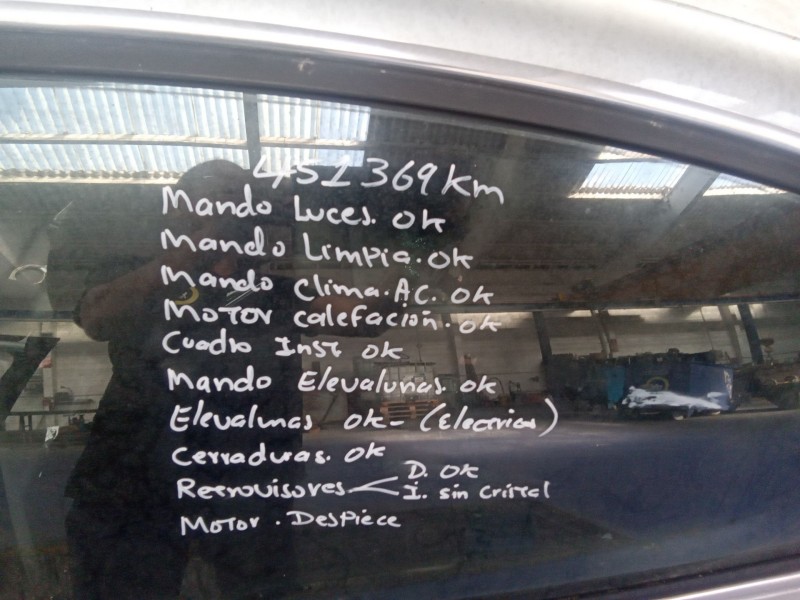 451369 Km
Mando Luces. OK
Mando Limpia. OK
Mando Clima. A.C. OK
Motor calefación. OK
Cuadro Inst OK
Mando Elevalunas. OK
Elevalunas OK - (Electrias)
Cerraduras. OK
Retrovisores D. OK
I. sin Cristal
Motor. Despiece